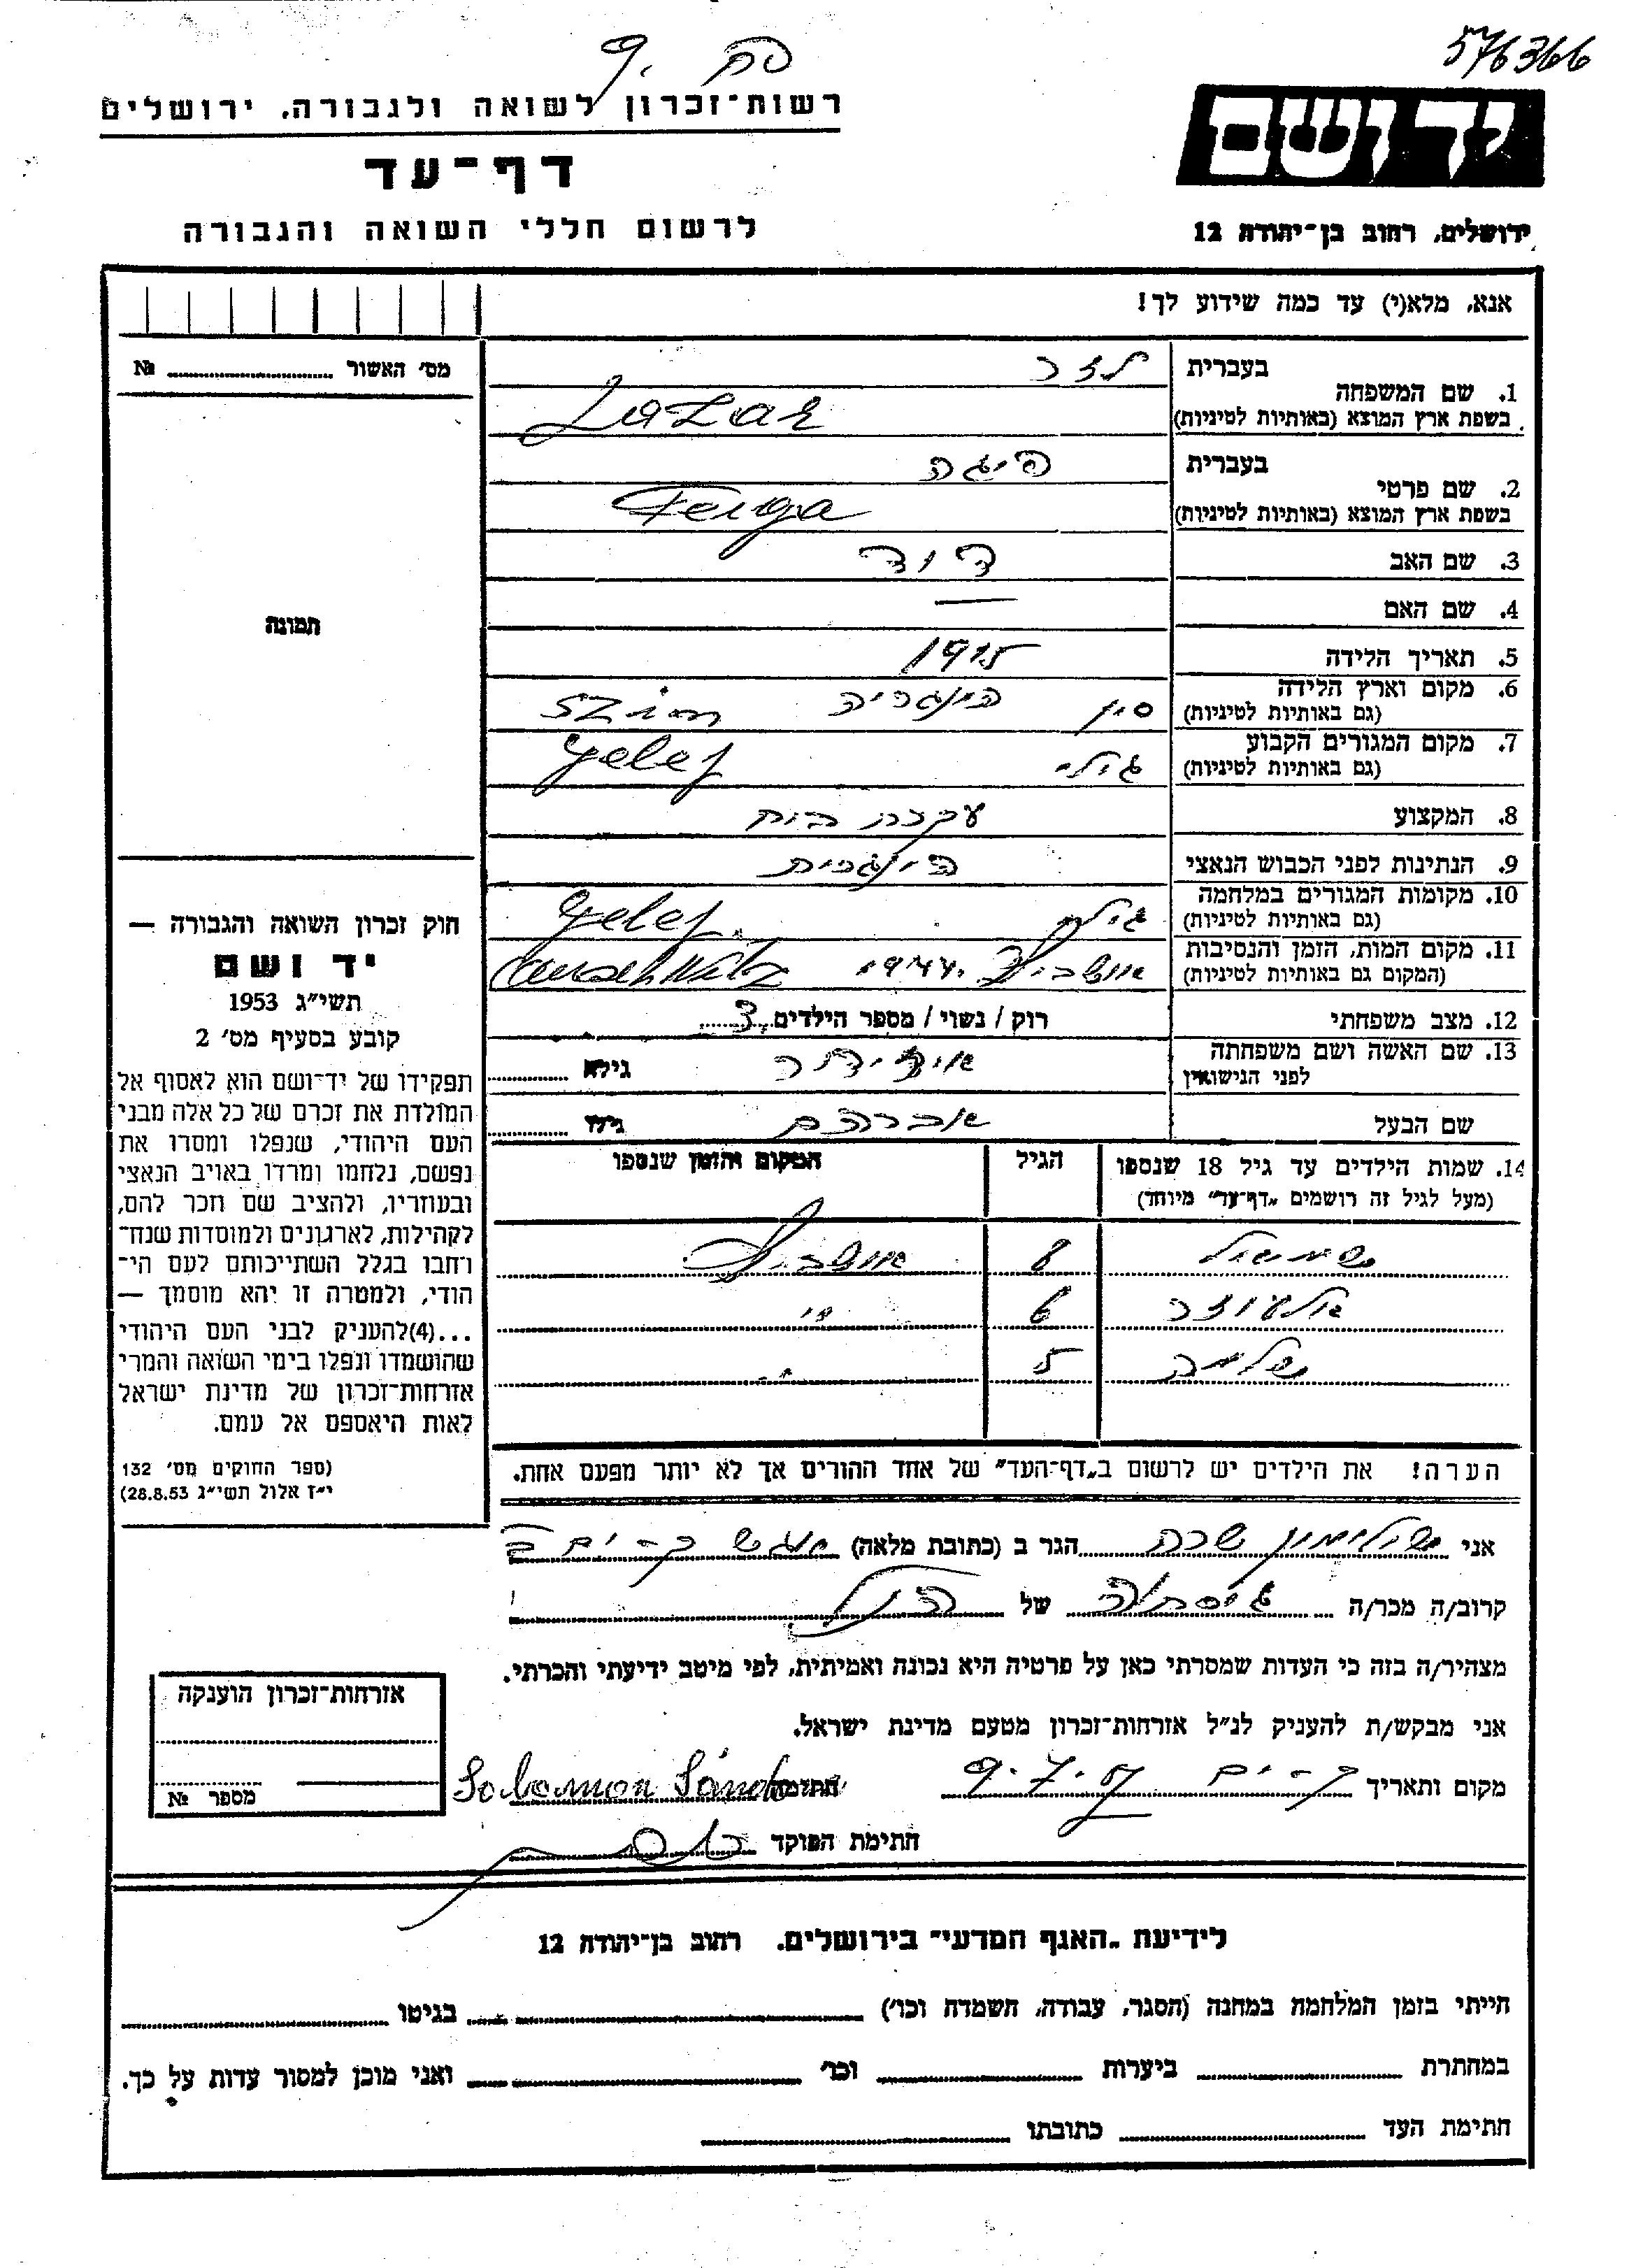 576366
פח. 9
רשות־זכרון לשואה ולגבורה, ירושלים
יד ושם
דף־עד
לרשום חללי השואה והגבורה
ירושלים, רחוב בן־יהודה 12
אנא, מלא(י) עד כמה שידוע לך!
מס׳ האשור № 
1. שם המשפחה
בעברית לזר
בשפת ארץ המוצא (באותיות לטיניות) Lazar
2. שם פרטי
בעברית פיגה
בשפת ארץ המוצא (באותיות לטיניות) Feiga
3. שם האב דוד
4. שם האם —
5. תאריך הלידה 1915
6. מקום וארץ הלידה
(גם באותיות לטיניות) סין הונגריה Szin
7. מקום המגורים הקבוע
(גם באותיות לטיניות) גילי Gelej
8. המקצוע עקרת בית
9. הנתינות לפני הכבוש הנאצי הונגרית
10. מקומות המגורים במלחמה
(גם באותיות לטיניות) Gelej
11. מקום המות, הזמן והנסיבות
(המקום גם באותיות לטיניות) אושביץ 1944
12. מצב משפחתי רוק / נשוי / מספר הילדים 3
13. שם האשה ושם משפחתה
לפני הנישואין גילא
שם הבעל אברהם גילו
תמונה
14. שמות הילדים עד גיל 18 שנספו
(מעל לגיל זה רושמים „דף־עד״ מיוחד) הגיל המקום והזמן שנספו
שמואל 8 אושביץ
אלעזר 6 "
שלמה 5 "
הערה! את הילדים יש לרשום ב„דף־העד״ של אחד ההורים אך לא יותר מפעם אחת.
חוק זכרון השואה והגבורה —
יד ושם
תשי״ג 1953
קובע בסעיף מס׳ 2
תפקידו של יד־ושם הוא לאסוף אל
המולדת את זכרם של כל אלה מבני
העם היהודי, שנפלו ומסרו את
נפשם, נלחמו ומרדו באויב הנאצי
ובעוזריו, ולהציב שם וזכר להם,
לקהילות, לארגונים ולמוסדות שנח־
רחבו בגלל השתייכותם לעם הי־
הודי, ולמטרה זו יהא מוסמך —
...(4)להעניק לבני העם היהודי
שהושמדו ונפלו בימי השואה והמרי
אזרחות־זכרון של מדינת ישראל
לאות היאספם אל עמם.
(ספר החוקים מס׳ 132
י״ז אלול תשי״ג 28.8.53)
אני שרה הגר ב (כתובת מלאה)
קרוב/ה מכר/ה גיסתה של הנ״ל
מצהיר/ה בזה כי העדות שמסרתי כאן על פרטיה היא נכונה ואמיתית, לפי מיטב ידיעתי והכרתי.
אני מבקש/ת להעניק לנ״ל אזרחות־זכרון מטעם מדינת ישראל.
מקום ותאריך ק־ים 9.7.57 חתימה
חתימת הפוקד
אזרחות־זכרון הוענקה
מספר №
לידיעת „האגף המדעי״ בירושלים, רחוב בן־יהודה 12
הייתי בזמן המלחמה במחנה (הסגר, עבודה, השמדה וכו׳) בגיטו
במחתרת ביערות וכו׳ ואני מוכן למסור עדות על כך.
חתימת העד כתובתו